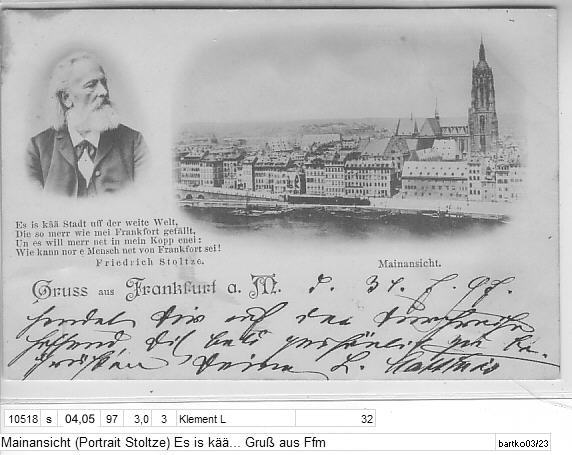 Es is kää Stadt uff der weite Welt,
Die so merr wie mei Frankfort gefällt,
Un es will merr net in mein Kopp enei:
Wie kann nor e Mensch net von Frankfort sei!
Friedrich Stoltze.
Mainansicht.
Gruss aus Frankfurt a. M.
sendet Dir auf der Durchreise
Dich bald persönlich zu
Deine L.
10518 s 04,05 97 3,0 3 Klement L 32
Mainansicht (Portrait Stoltze) Es is kää... Gruß aus Ffm
bartko03/23